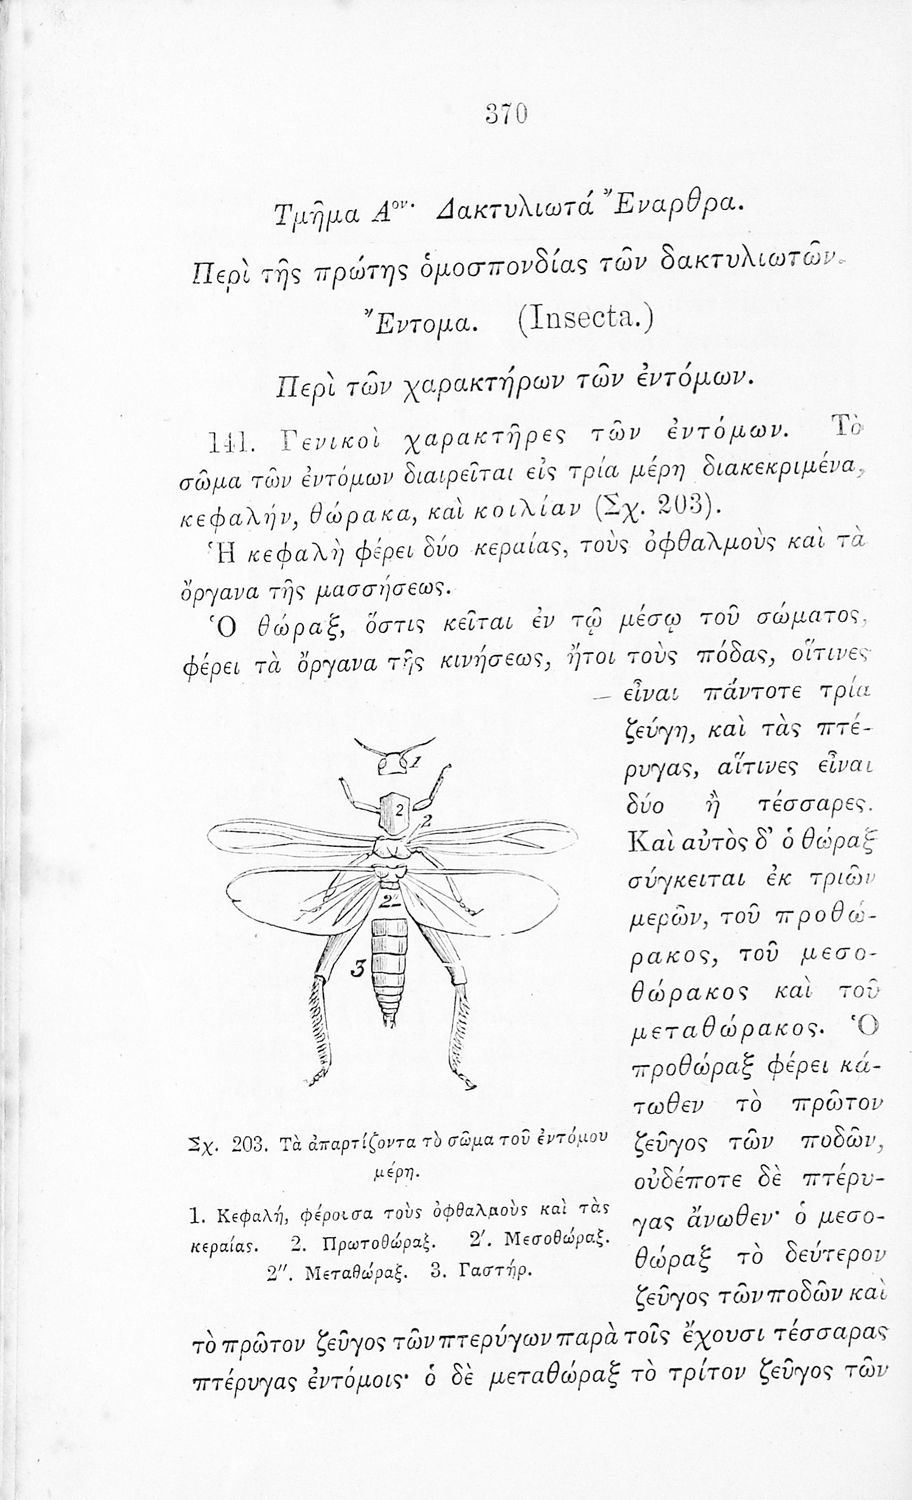 370
Τμῆμα Αον. Δακτυλιωτά Ἔναρθρα.
Περὶ τῆς πρώτης ὁμοσπονδίας τῶν δακτυλιωτῶν.
Ἔντομα. (Insecta.)
Περὶ τῶν χαρακτήρων τῶν ἐντόμων.
141. Γενικοὶ χαρακτῆρες τῶν ἐντόμων. Τὸ
σῶμα τῶν ἐντόμων διαιρεῖται εἰς τρία μέρη διακεκριμένα,
κεφαλήν, θώρακα, καὶ κοιλίαν (Σχ. 203).
Ἡ κεφαλὴ φέρει δύο κεραίας, τοὺς ὀφθαλμοὺς καὶ τὰ
ὄργανα τῆς μασσήσεως.
Ὁ θώραξ, ὅστις κεῖται ἐν τῷ μέσῳ τοῦ σώματος,
φέρει τὰ ὄργανα τῆς κινήσεως, ἤτοι τοὺς πόδας, οἵτινες
εἶναι πάντοτε τρία
ζεύγη, καὶ τὰς πτέ-
ρυγας, αἵτινες εἶναι
δύο ἢ τέσσαρες.
Καὶ αὐτὸς δ' ὁ θώραξ
σύγκειται ἐκ τριῶν
μερῶν, τοῦ προθώ-
ρακος, τοῦ μεσο-
θώρακος καὶ τοῦ
μεταθώρακος. Ὁ
προθώραξ φέρει κά-
τωθεν τὸ πρῶτον
ζεῦγος τῶν ποδῶν,
οὐδέποτε δὲ πτέρυ-
γας ἄνωθεν· ὁ μεσο-
θώραξ τὸ δεύτερον
ζεῦγος τῶν ποδῶν καὶ
1
2
2
2''
3
Σχ. 203. Τὰ ἀπαρτίζοντα τὸ σῶμα τοῦ ἐντόμου
μέρη.
1. Κεφαλή, φέροισα τοὺς ὀφθαλμοὺς καὶ τὰς
κεραίας. 2. Πρωτοθώραξ. 2'. Μεσοθώραξ.
2''. Μεταθώραξ. 3. Γαστήρ.
τὸ πρῶτον ζεῦγος τῶν πτερύγων παρὰ τοῖς ἔχουσι τέσσαρας
πτέρυγας ἐντόμοις· ὁ δὲ μεταθώραξ τὸ τρίτον ζεῦγος τῶν